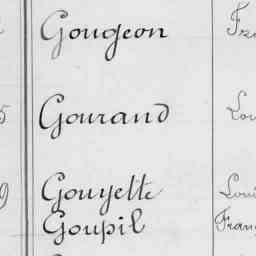 Gougeon
Gourand
Gouyette
Goupil